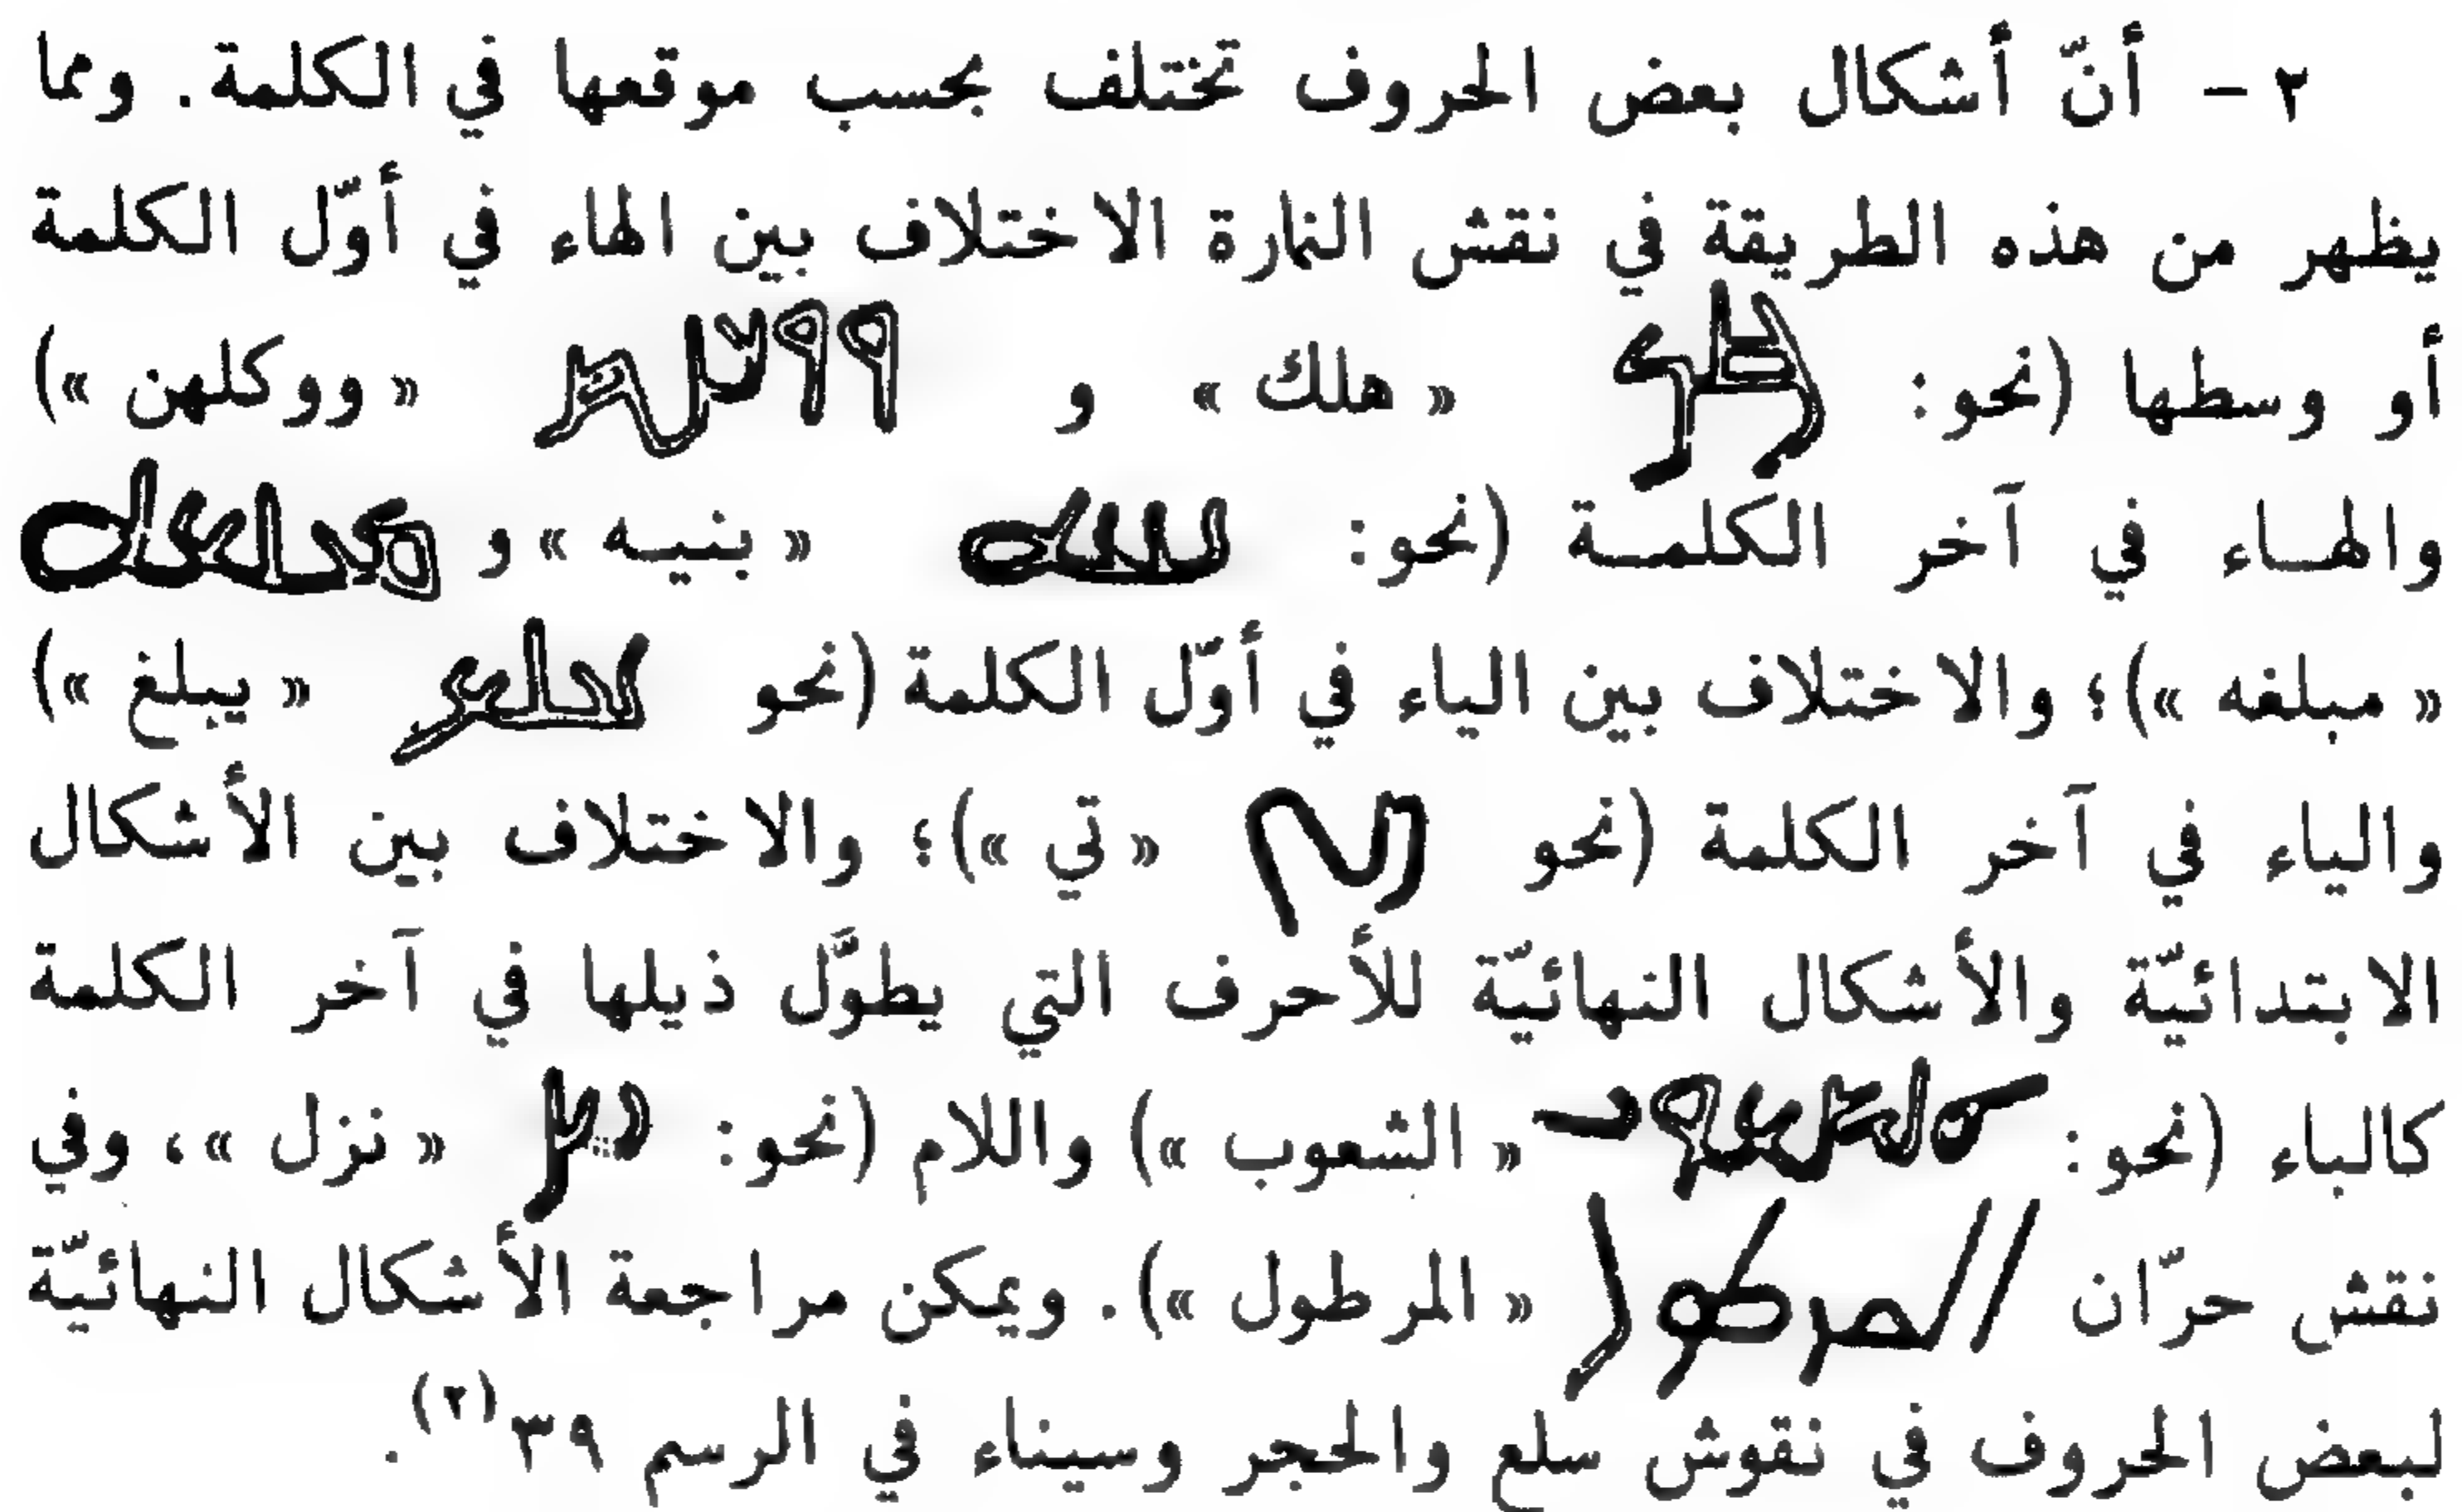 ٢ – أنّ أشكال بعض الحروف تختلف بحسب موقعها في الكلمة. ومما
يظهر من هذه الطريقة في نقش النمارة الاختلاف بين الهاء في أوّل الكلمة
أو وسطها (نحو: « هلك » و « ووكلهن »)
والهاء في آخر الكلمة (نحو: « بنيه » و
« مبلغه »)؛ والاختلاف بين الياء في أوّل الكلمة (نحو « يبلغ »)
والياء في آخر الكلمة (نحو « تي »)؛ والاختلاف بين الأشكال
الابتدائيّة والأشكال النهائيّة للأحرف التي يطوَّل ذيلها في آخر الكلمة
كالباء (نحو: « الشعوب ») واللام (نحو: « نزل »، وفي
نقش حرّان « المرطول »). ويمكن مراجعة الأشكال النهائيّة
لبعض الحروف في نقوش سلع والحجر وسيناء في الرسم ٣٩(٢).